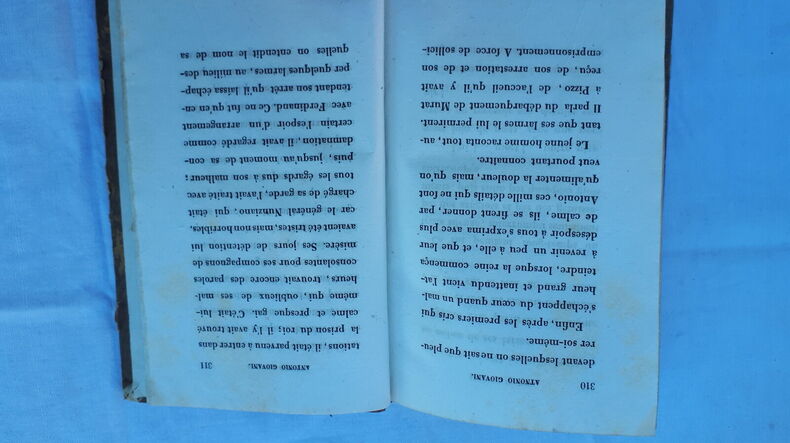 310 ANTONIO GIOVANI.
devant lesquelles on ne sait que pleu-
rer soi-même.
Enfin, après les premiers cris qui
s'échappent du cœur quand un mal-
heur grand et inattendu vient l'at-
teindre, lorsque la reine commença
à revenir un peu à elle, et que leur
désespoir à tous s'exprima avec plus
de calme, ils se firent donner, par
Antonio, ces mille détails qui ne font
qu'alimenter la douleur, mais qu'on
veut pourtant connaître.
Le jeune homme raconta tout, au-
tant que ses larmes le lui permirent.
Il parla du débarquement de Murat
à Pizzo, de l'accueil qu'il y avait
reçu, de son arrestation et de son
emprisonnement. A force de sollici-
ANTONIO GIOVANI. 311
tations, il était parvenu à entrer dans
la prison du roi; il l'y avait trouvé
calme et presque gai. C'était lui-
même qui, oublieux de ses mal-
heurs, trouvait encore des paroles
consolantes pour ses compagnons de
misère. Ses jours de détention lui
avaient été tristes, mais non horribles,
car le général Nunziane, qui était
chargé de sa garde, l'avait traité avec
tous les égards dus à son malheur;
puis, jusqu'au moment de sa con-
damnation, il avait regardé comme
certain l'espoir d'un arrangement
avec Ferdinand. Ce ne fut qu'en en-
tendant son arrêt qu'il laissa échap-
per quelques larmes, au milieu des-
quelles on entendit le nom de sa